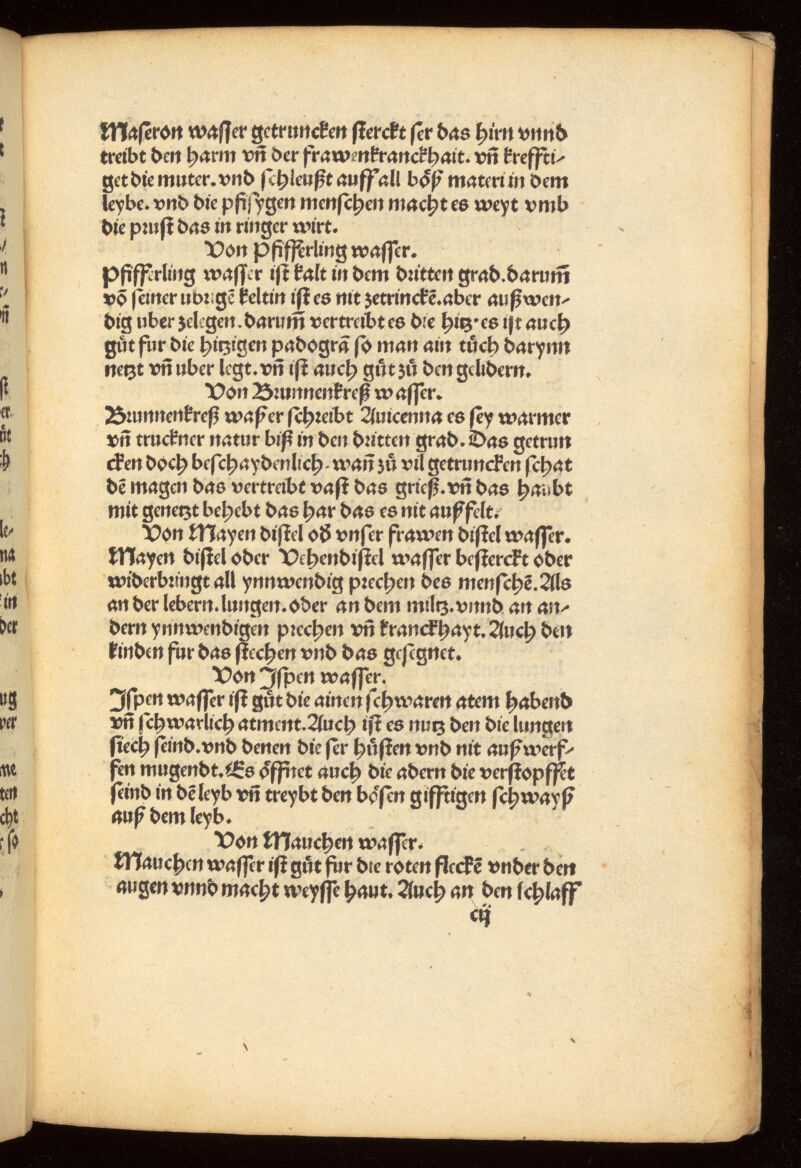 Maseron wasser getruncken sterckt ser das hirn vnnd
treibt den harm vn̄ der frawenkranckhait. vn̄ kreffti⸗
get die muter. vnd schleußt auff all bo̊ß materi in dem
leybe. vnd die pfisygen menschen macht es weyt vmb
die prust das in ringer wirt.
Von Pfifferling wasser.
Pfifferling wasser ist kalt in dem dritten grad. darum̄
vō seiner ubrigē keltin ist es nit zetrinckē. aber außwen⸗
dig uber zelegen. darum̄ vertreibt es die hitz· es ist auch
gůt fur die hitzigen padogrā so man ain tůch darynn
netzt vn̄ uber legt. vn̄ ist auch gůt zů den gelidern.
Von Brunnenkreß wasser.
Brunnenkreß waßer schreibt Auicenna es sey warmer
vn̄ truckner natur biß in den dritten grad. Das getrun
cken doch beschaydenlich. wan̄ zů vil getruncken schat
dē magen das vertreibt vast das grieß. vn̄ das haubt
mit genetzt behebt das har das es nit außfelt.
Von Mayen distel od̕ vnser frawen distel wasser.
Mayen distel oder Vehendistel wasser besterckt oder
widerbringt all ynnwendig prechen des menschē. Als
an der lebern. lungen. oder an dem miltz. vnnd an an⸗
dern ynnwendigen prechen vn̄ kranckhayt. Auch den
kinden fur das stechen vnd das gesegnet.
Von Jspen wasser.
Jspen wasser ist gůt die ainen schwaren atem habend
vn̄ schwarlich atment. Auch ist es nutz den die lungen
siech seind. vnd denen die ser hůsten vnd nit außwerf⸗
fen mugendt. Es o̊ffnet auch die adern die verstopffet
seind in dē leyb vn̄ treybt den bo̊sen gifftigen schwayß
auß dem leyb.
Von Mauchen wasser.
Mauchen wasser ist gůt fur die roten fleckē vnder den
augen vnnd macht weysse haut. Auch an den schlaff
cij